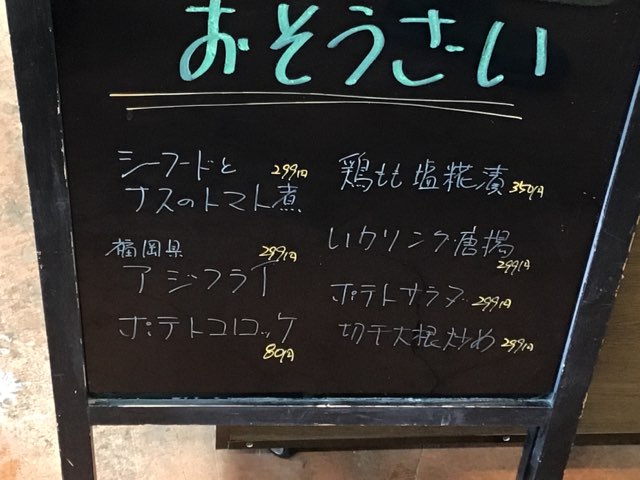 おそうざい
シーフードと 299円
ナスのトマト煮
福岡県 299円
アジフライ
ポテトコロッケ
80円
鶏もも塩糀漬 350円
いカリング唐揚
299円
ポテトサラダ 299円
切干大根炒め 299円